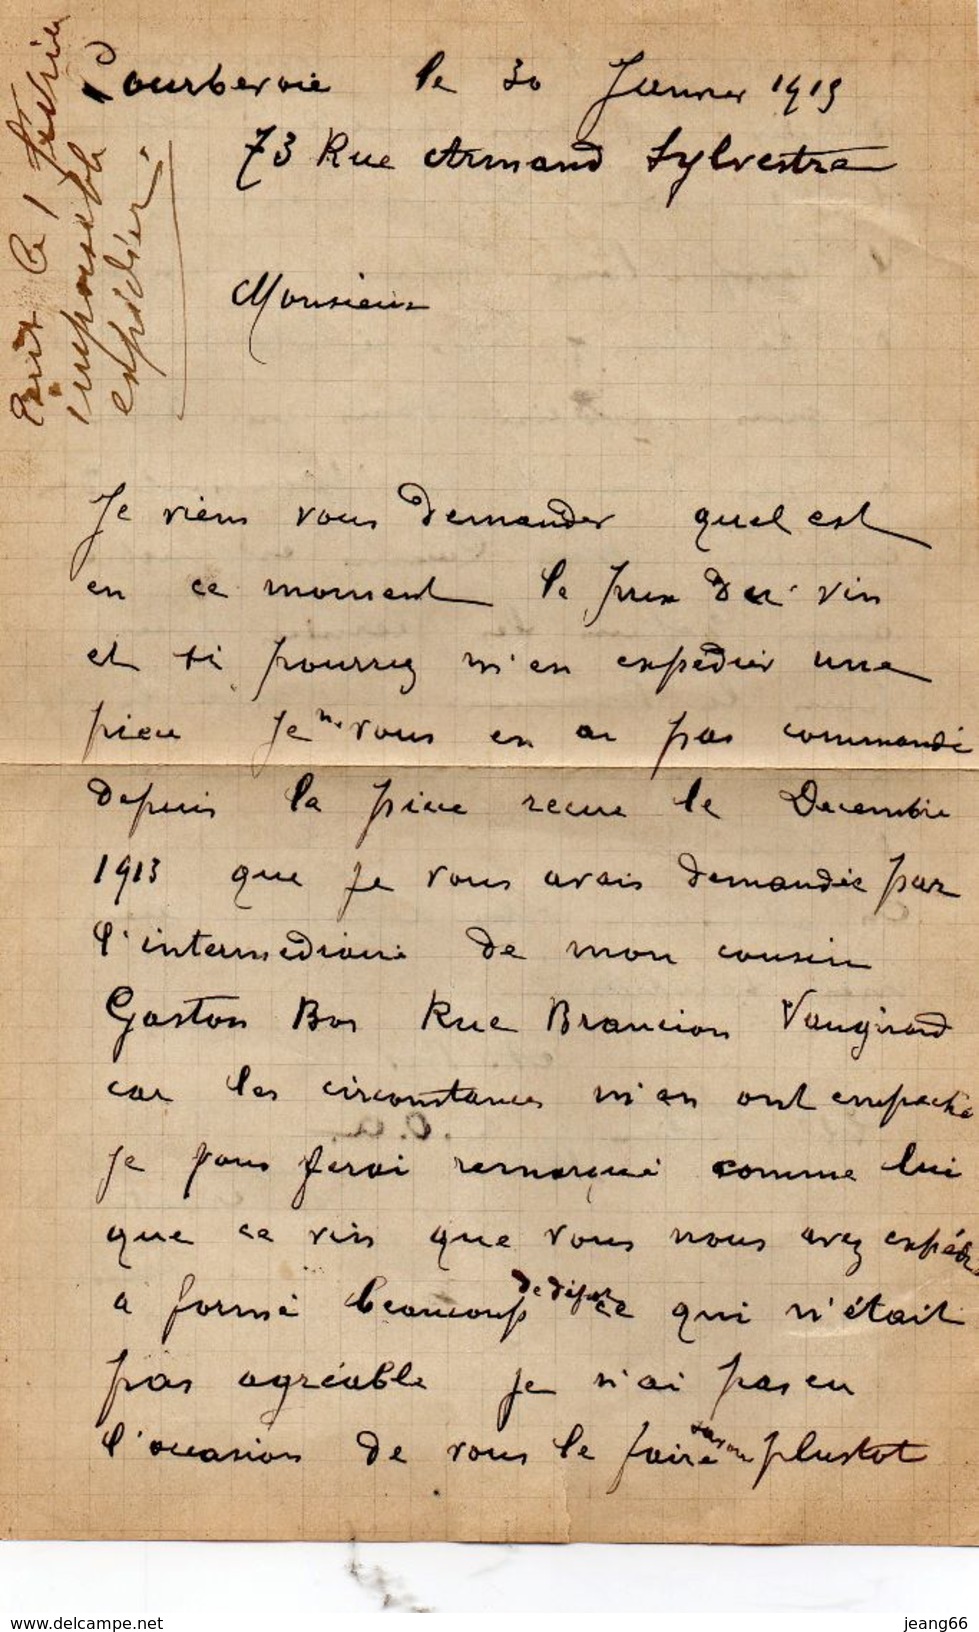 Courbevoie le 30 Janvier 1915
73 Rue Armand Sylvestre
Ecrit le 1 Février
impossible
expédier.
Monsieur
Je viens vous demander quel est
en ce moment le prix du vin
et si pourrez m'en expédier une
piece Je ne vous en ai pas commandé
depuis la piece recue le Decembre
1913 que je vous avais demandée par
l'intermediaire de mon cousin
Gaston Bos Rue Brancion Vaugirard
car les circonstances m'en ont empeché
je vous ferai remarqué comme lui
que ce vin que vous nous avez expédié
a formé beaucoup de dépot ce qui n'était
pas agréable je n'ai pas eu
l'occasion de vous le faire savoir plustot
www.delcampe.net
jeang66